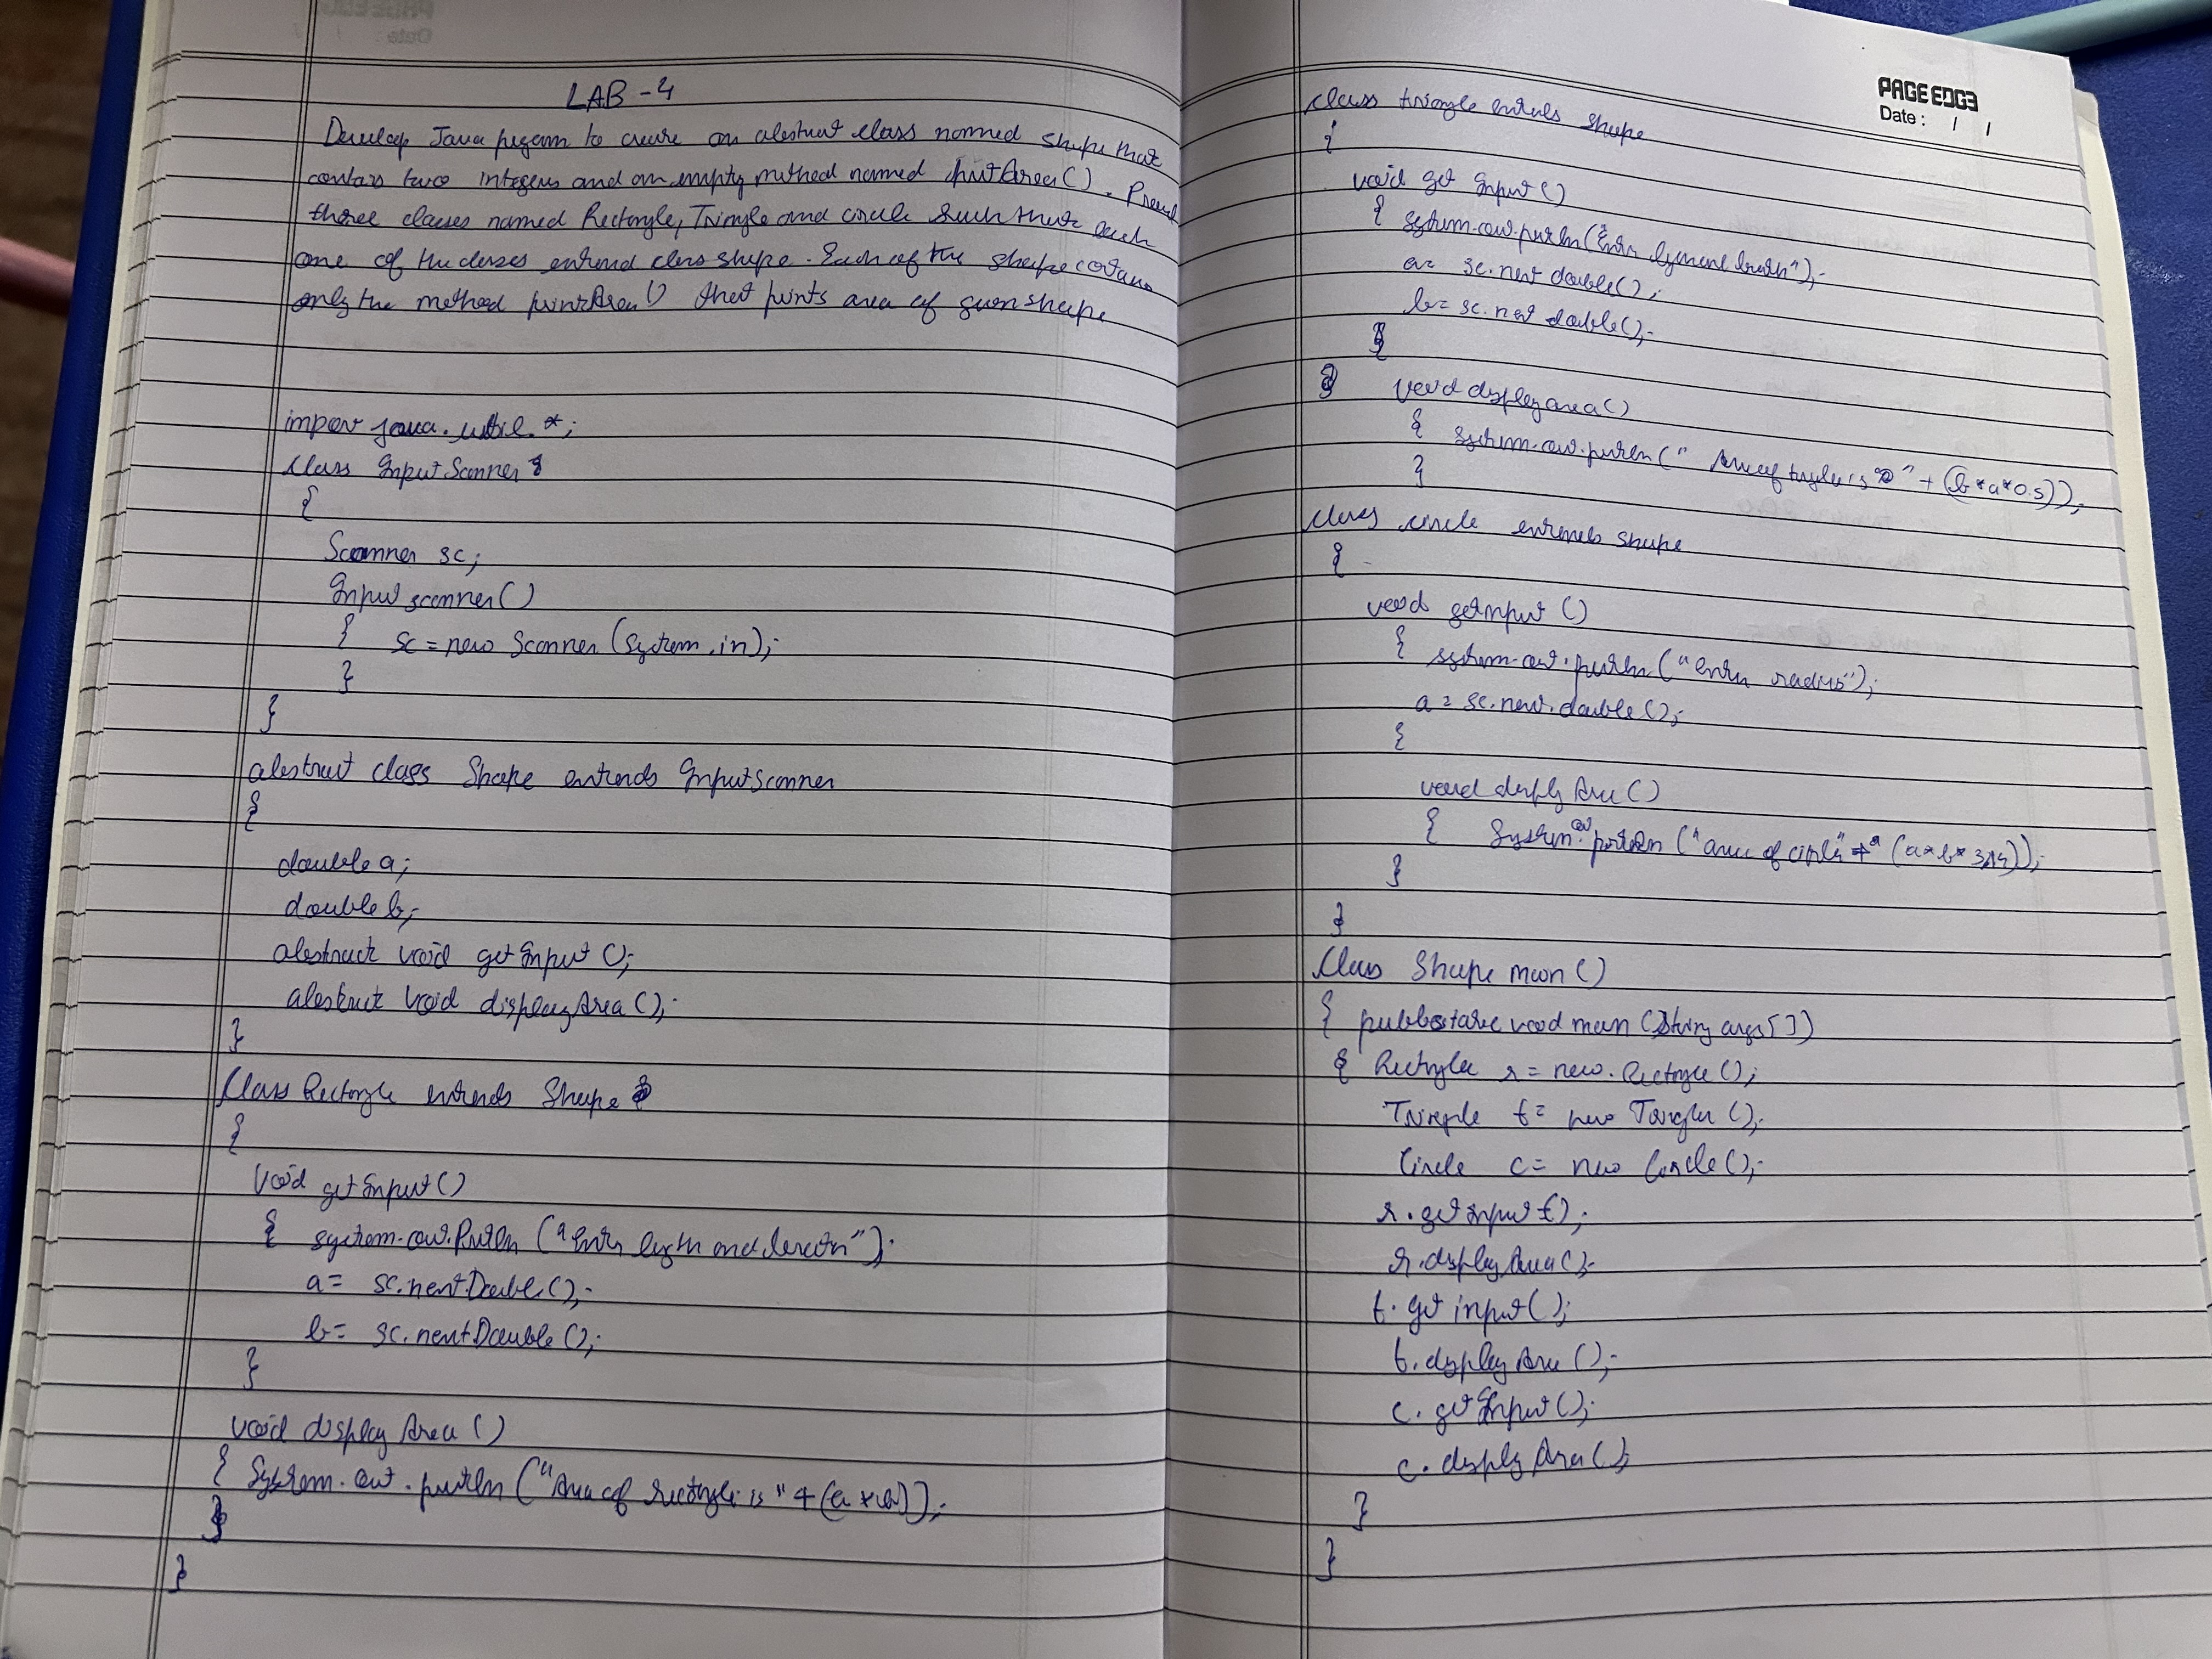 LAB-4
Develop Java program to create an abstract class named shape that
contains two integers and an empty method named printArea(). Provide
three classes named Rectangle, Triangle and circle such that each
one of the classes extend class shape. Each of the shape contains
only the method printArea() that prints area of given shape
import java.util.*;
class InputScanner
{
Scanner sc;
Input scanner()
{ sc = new Scanner(System.in);
}
}
abstract class Shape extends InputScanner
{
double a;
double b;
abstract void getInput();
abstract void displayArea();
}
class Rectangle extends Shape
{
void getInput()
{ system.out.println("Enter length and breadth");
a = sc.nextDouble();
b = sc.nextDouble();
}
void displayArea()
{ System.out.println("Area of rectangle is"+(a*b));
}
}
class triangle extends shape
{
void getInput()
{ system.out.println("Enter breadth");
a = sc.next double();
b = sc.next double();
}
void display area()
{ system.out.println(" Area of triangle is " + (b*a*0.5));
}
class circle extends shape
{
void getinput()
{ system.out.println("Enter radius");
a = sc.next.double();
}
void display Area()
{ System.out.println("area of circle"+(a*a*3.14));
}
}
class Shape main()
{ public static void main(String args[])
{ Rectangle r = new.Rectangle();
Triangle t = new Triangle();
Circle c = new Circle();
r.get input();
r.displayArea();
t.get input();
t.display Area();
c.getInput();
c.display Area();
}
}
PAGE EDGE
Date: / /